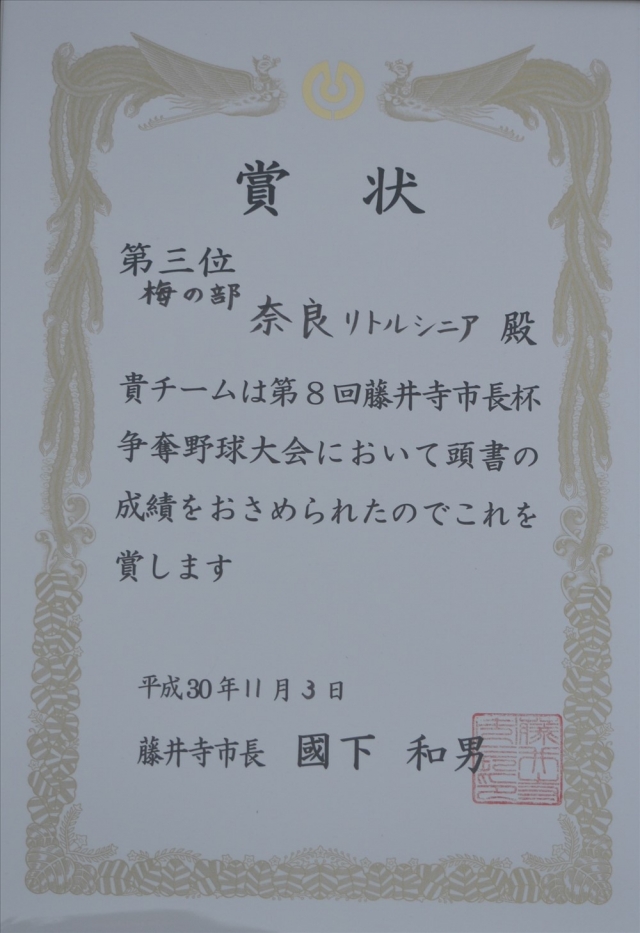 賞状
第三位
梅の部
奈良リトルシニア 殿
貴チームは第8回藤井寺市長杯
争奪野球大会において頭書の
成績をおさめられたのでこれを
賞します
平成30年11月3日
藤井寺市長 國下 和男